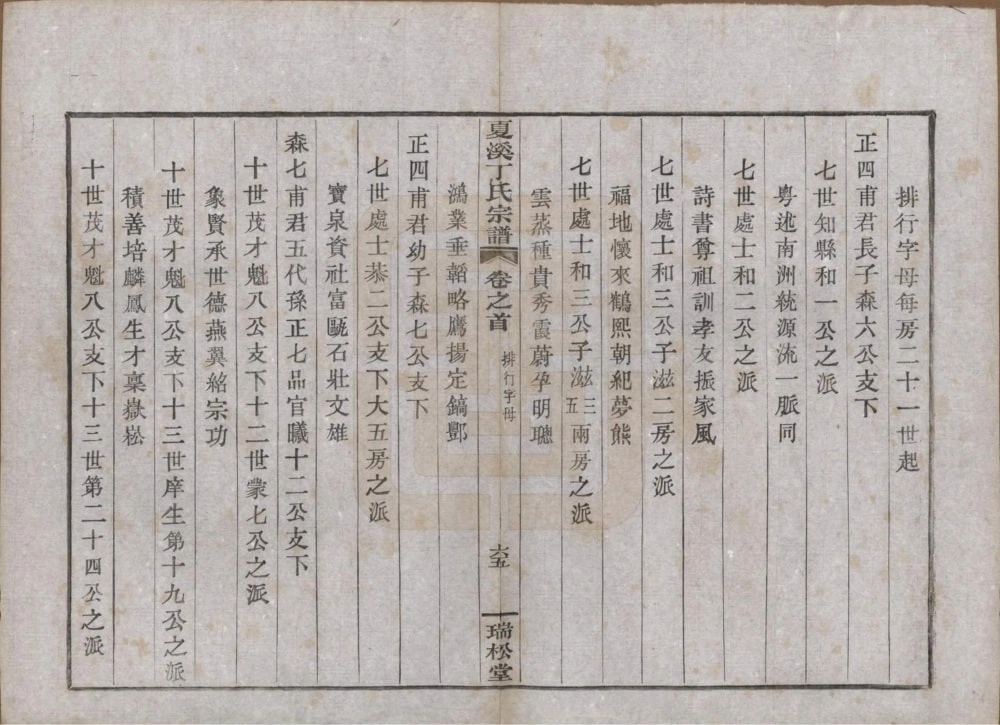 排行字母每房二十一世起
正四甫君長子森六公支下
七世知縣和一公之派
粤述南洲統源流一脈同
七世處士和二公之派
詩書尊祖訓孝友振家風
七世處士和三公子滋二房之派
福地懷來鶴熙朝紀夢熊
七世處士和三公子滋三五兩房之派
雲蒸種貴秀霞蔚孕明聰
夏溪丁氏宗譜 卷之首 排行字母 六五 瑞松堂
鴻業垂韜略鷹揚定鎬酆
正四甫君幼子森七公支下
七世處士恭二公支下大五房之派
寶泉資社富甌石壯文雄
森七甫君五代孫正七品官曦十二公支下
十世茂才魁八公支下十二世蒙七公之派
象賢承世德燕翼紹宗功
十世茂才魁八公支下十三世庠生第十九公之派
積善培麟鳳生才稟嶽崧
十世茂才魁八公支下十三世第二十四公之派